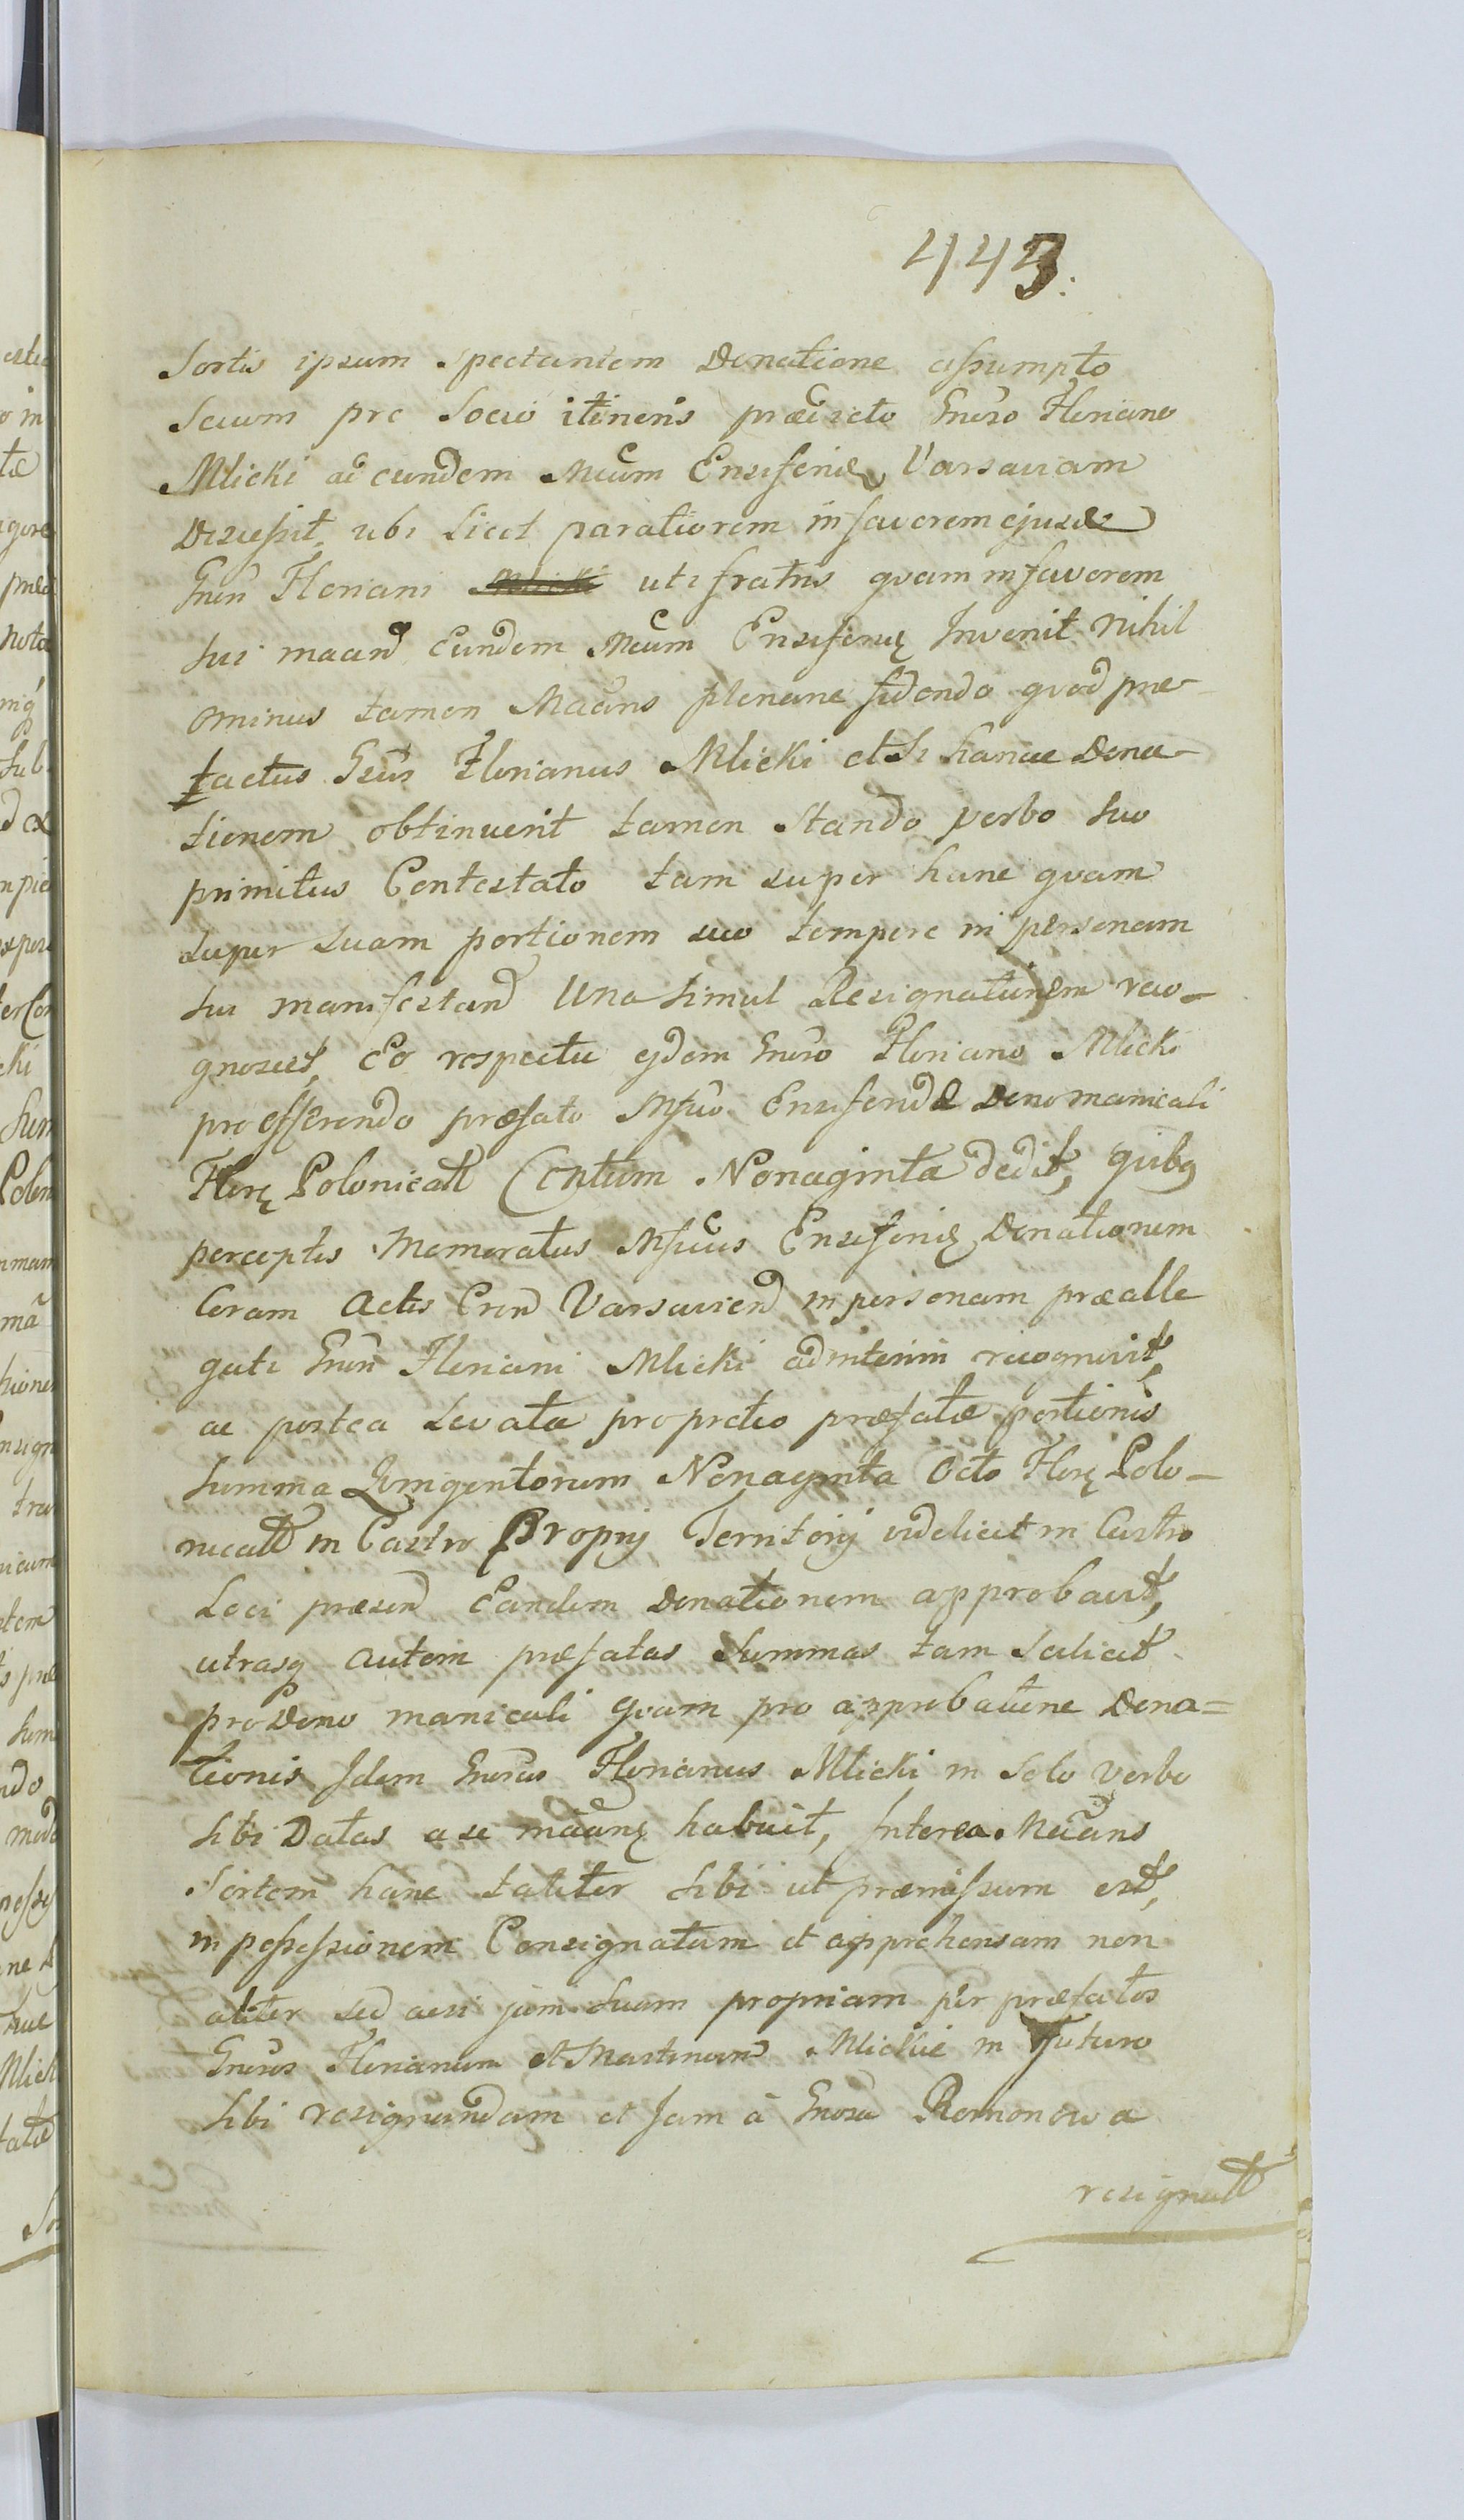 443.
Sortis ipsum spectantem Donatione assumpto
Secum pro Socio itineris prædicto Gnero Floriano
Mlicki ad eundem Mcum Ensiferū Varsaviam
Discessit, ubi licet paratiorem in favorem ejusd
Gnri Floriani uti fratris qvam in favorem
sui maand Eundem Mcum Ensiferū Invenit Nihil
ominus tamen Maans plenarie fidendo qvod præ-
tactus Gnrus Florianus Mlicki etsi hancce Dona-
tionem obtinuerit tamen Stando verbo suo
primitus Contestato tam super hanc qvam
super suam portionem suo tempore in personam
sui manifestand Una simul Resignationem reco-
gnoscet, Eo respectu ejdem Gnero Floriano Mlicki
pro efferendo præfato Mfico Ensifero Dono manicali
Flor. Polonicall Centum Nonaginta dedit, quibq
perceptis Memoratus Mficus Ensiferū Donationem
Coram Actis Cren Varsavien in personam prealle
gati Gnri Floriani Mlicki ad interim recognovit,
ac postea Levata pro pretio præfatæ portionis
summa Qvingentorum Nonaginta Octo Flor. Polo-
nicall in Castro Proprij Territorij videlicet in Castro
Loci præsen Eandem Donationem approbavit,
utrasq autem præfatas Summas tam Scilicet
pro Dono manicali qvam pro approbatione Dona=
tionis Idem Gnerus Florianus Mlicki in Solo Verbo
sibi Datas a se maane habuit, Interea Maans
Sortem hanc taliter sibi ut præmissum est,
in possessionem Consignatam et apprehensam non
aliter sed acsi jam suam propriam per præfatos
Gneros Florianum et Martinum Mlickie in futuro
sibi resignandam et jam à Gnosa Romonowa
resignatt